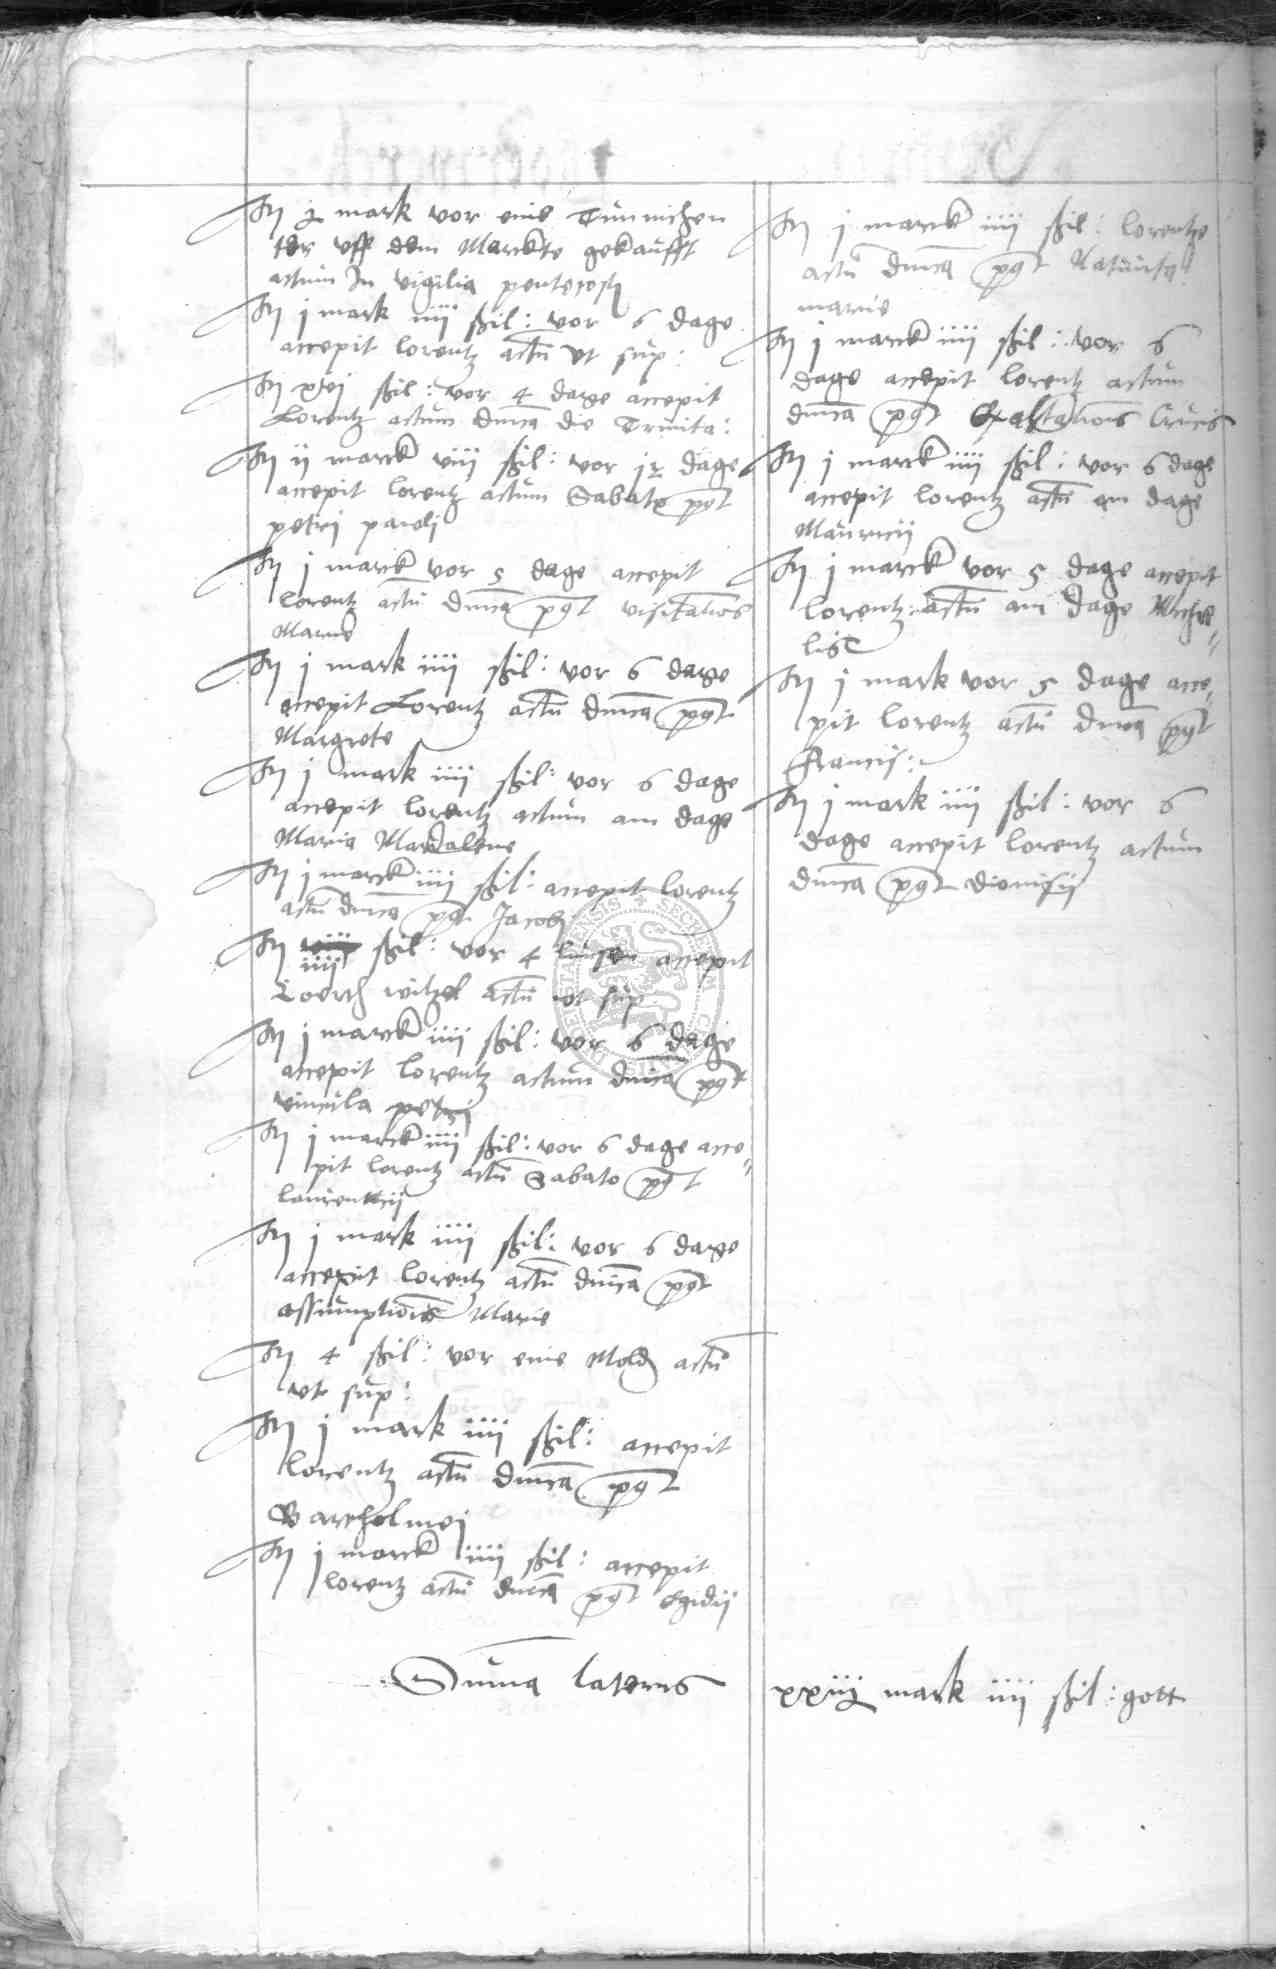 It j mark vor eine Tunnichen
ter vff dem Marckte gekaufft
actum In vigilia pentecost
It j mark iiij ßil: vor 6 dage
accepit lorentz actū vt sup:
It xvj ßil: vor 4 dage accepit
Lorentz actum dnica die Trinita:
It ij marck viij ßil: vor 12 dage
accepit lorentz actum Sabato post
petri pauli
It j marck vor 5 dage accepit
lorentz actū dnica post visitationis
Marie
It j mark iiij ßil: vor 6 dage
accepit Lorentz actū dnica post
Margrete
It j mark iiij ßil: vor 6 dage
accepit lorentz actum am dage
Maria Markdalene
It j marck iiij ßil: accepit lorentz
actū dnica post Jacobj
It iiij ßil: vor 4 accepit
witzel actū vt sup
It j marck iiij ßil: vor 6 dage
accepit lorentz actum dnica post
vincula petrj
It j marck iiij ßil: vor 6 dage acce-
pit lorentz actū Sabato post
laurentij
It j mark iiij ßil: vor 6 dage
accepit lorentz actū dnica post
assumptionis Marie
It 4 ßil: vor eine Mold actū
vt sup:
It j mark iiij ßil: accepit
lorentz actū dnica post
Bartholmej
It j marck iiij ßil: accepit
lorentz actū dnica post Egidij
It j marck iiij ßil: lorentze
actū dnica post Natiuita:
marie
It j marck iiij ßil: vor 6
dage accepit lorentz actum
dnica post Exaltationis Crucis
It j marck iiij ßil: vor 6 dage
accepit lorentz actū am dage
Mauricij
It j marck vor 5 dage accepit
lorentz actū am dage Miche-
lis
It j mark vor 5 dage acce-
pit lorentz actū dnica post
francisj:
It j mark iiij ßil: vor 6
dage accepit lorentz actum
dnica post dionisij
Suma lateris xxiij mark iiij ßil: gott